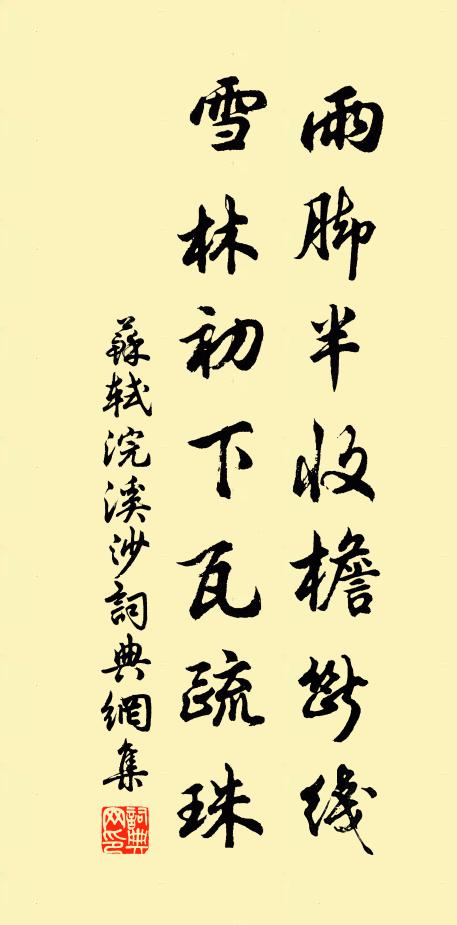 雨脚半收檐斷线
雪林初下瓦疏珠
蘇軾浣溪沙詞典網集
詞典網印